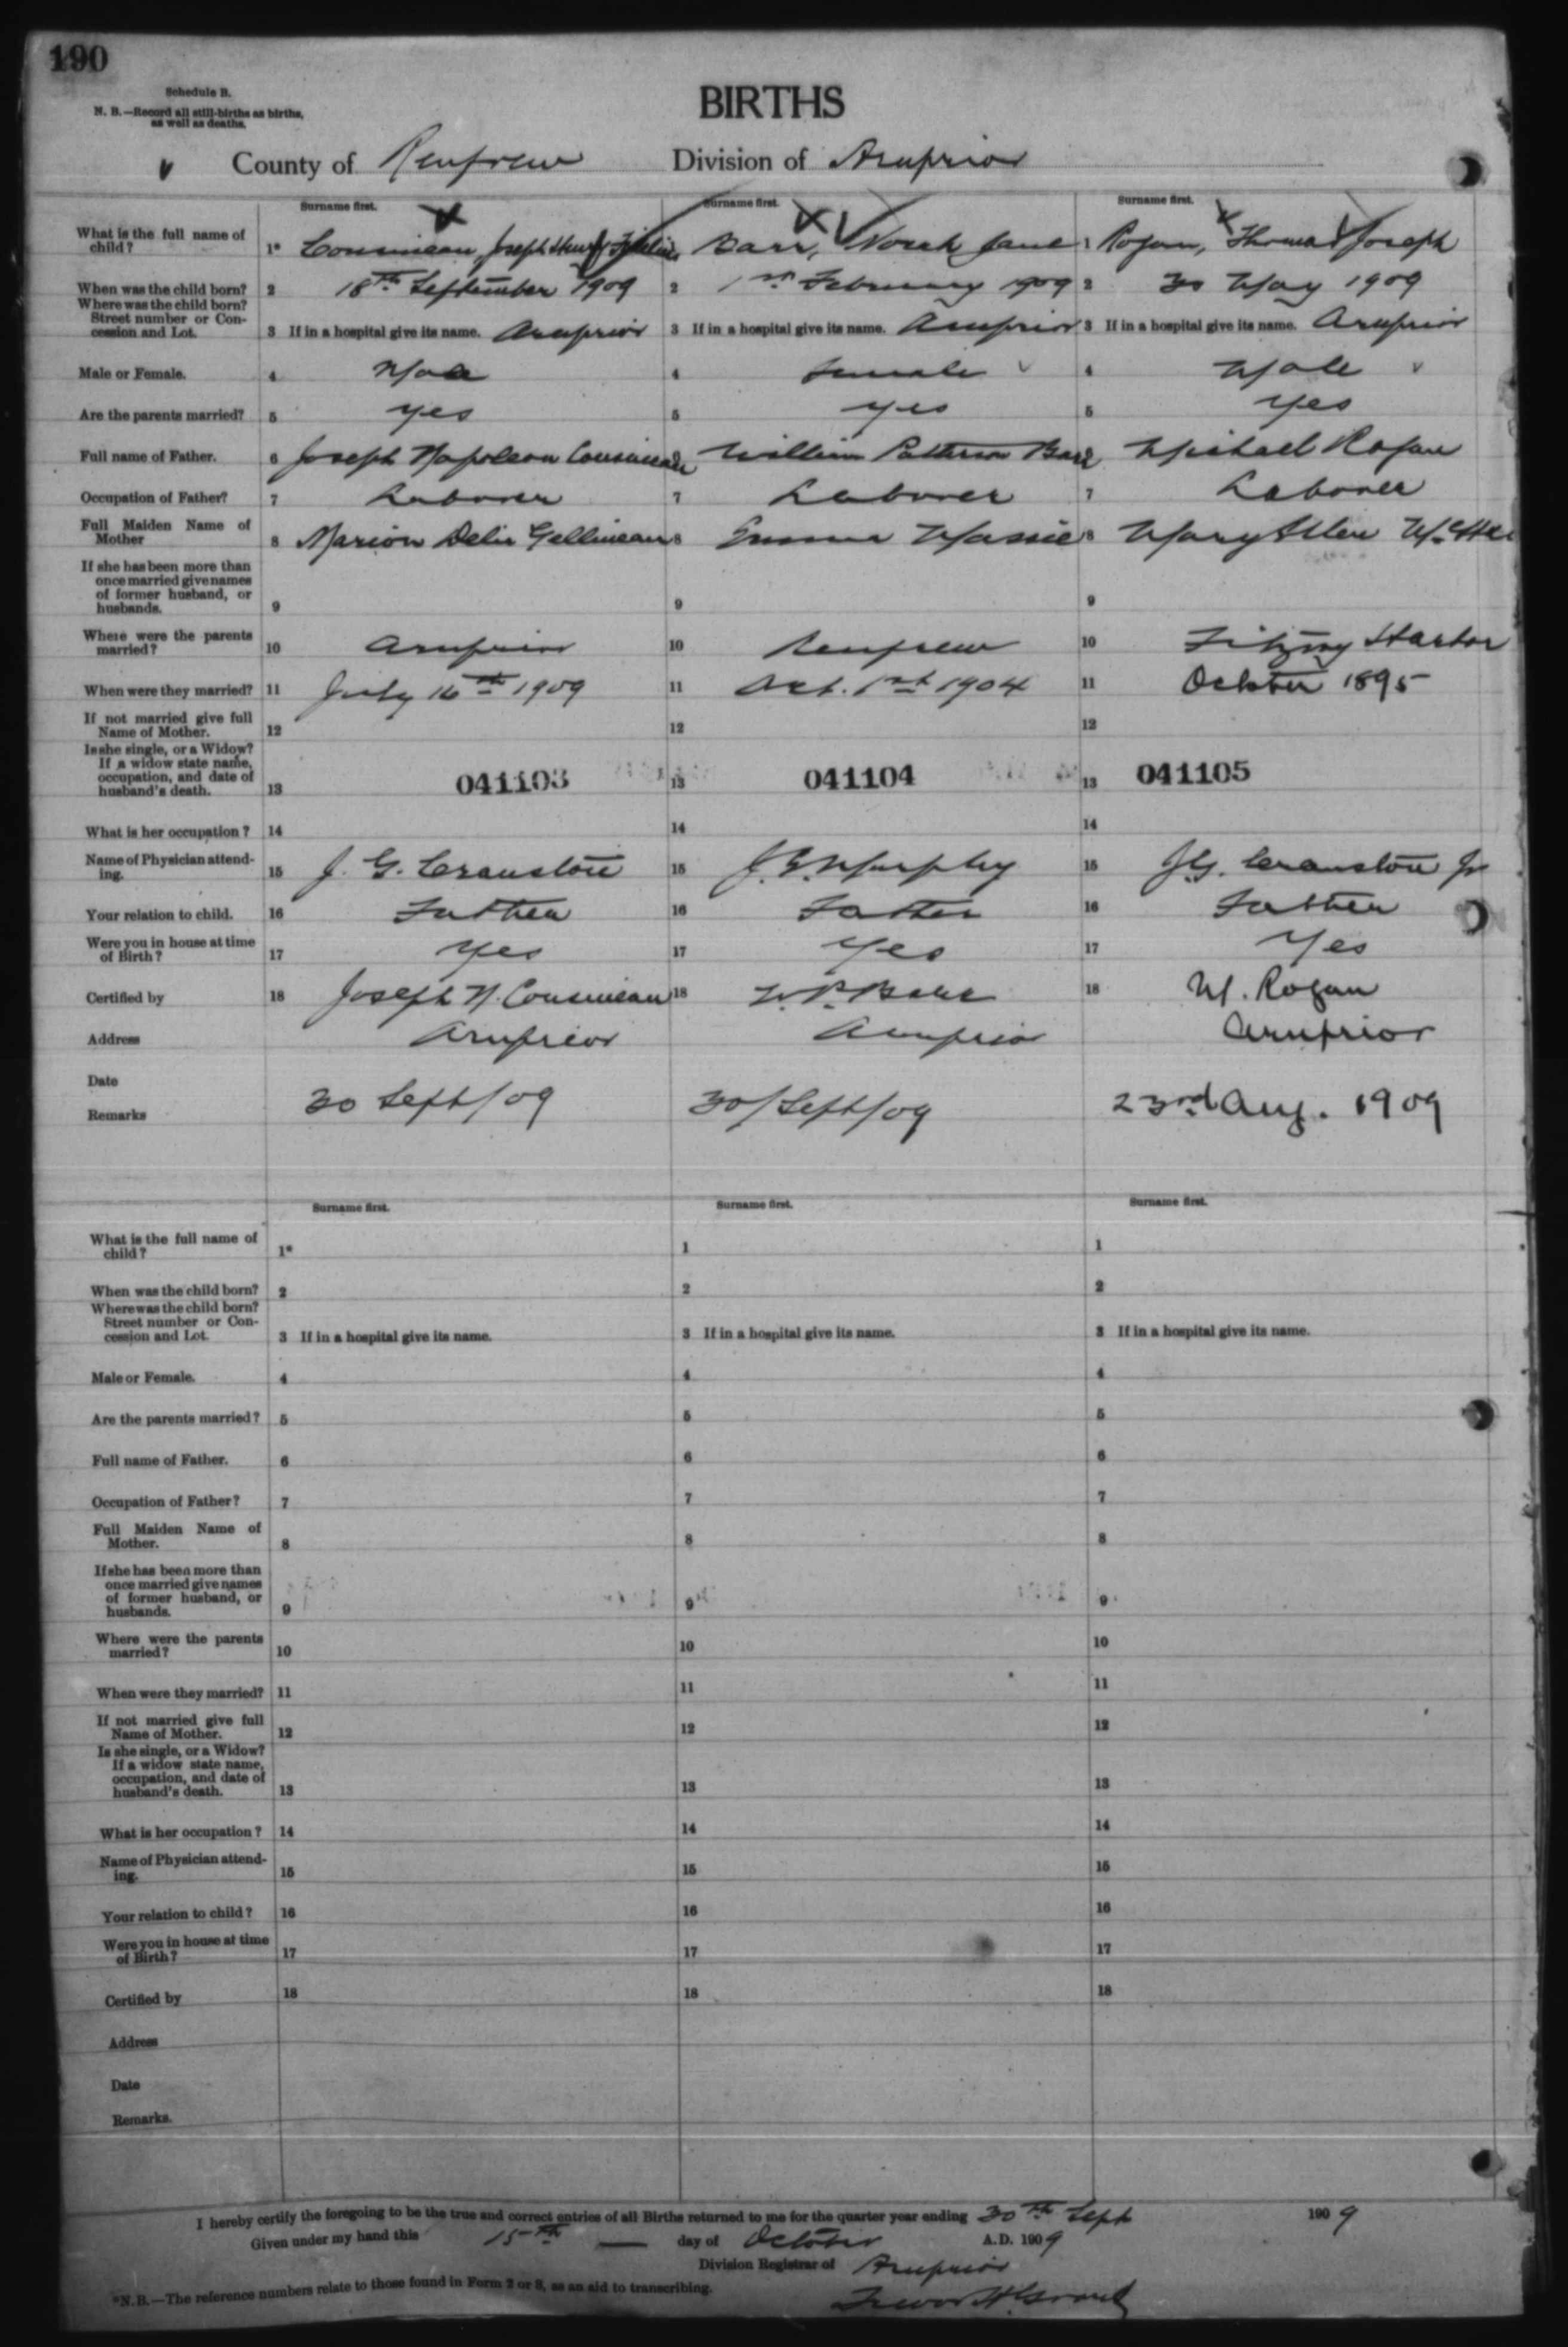 190
Schedule B.
N. B.—Record all still-births as births,
as well as deaths.
BIRTHS
County of Renfrew Division of Arnprior
Surname first. Surname first. Surname first.
What is the full name of child? 1* Cousineau, Joseph Henry 1 Barr, Norah Jane 1 Rogan, Thomas Joseph
When was the child born? 2 18th September 1909 2 1st February 1909 2 30 May 1909
Where was the child born? Street number or Concession and Lot. 3 If in a hospital give its name. Arnprior 3 If in a hospital give its name. Arnprior 3 If in a hospital give its name. Arnprior
Male or Female. 4 Male 4 Female 4 Male
Are the parents married? 5 yes 5 yes 5 yes
Full name of Father. 6 Joseph Napoleon Cousineau 6 William Patterson Barr 6 Michael Rogan
Occupation of Father? 7 Laborer 7 Laborer 7 Laborer
Full Maiden Name of Mother 8 Marion Delia Gellineau 8 Emma Massie 8 Mary Ellen
If she has been more than once married give names of former husband, or husbands. 9 9 9
Where were the parents married? 10 Arnprior 10 Renfrew 10 Fitzroy Harbor
When were they married? 11 July 16th 1909 11 Oct. 1st 1904 11 October 1895
If not married give full Name of Mother. 12 12 12
Is she single, or a Widow? If a widow state name, occupation, and date of husband's death. 13 041103 13 041104 13 041105
What is her occupation? 14 14 14
Name of Physician attending. 15 J. G. Cranston 15 J. G. Murphy 15 J.G. Cranston Jr
Your relation to child. 16 Father 16 Father 16 Father
Were you in house at time of Birth? 17 Yes 17 Yes 17 Yes
Certified by 18 Joseph N. Cousineau 18 W. P. Barr 18 M. Rogan
Address Arnprior Arnprior Arnprior
Date
Remarks 30 Sept/09 30/Sept/09 23rd Aug. 1909
Surname first. Surname first. Surname first.
What is the full name of child? 1* 1 1
When was the child born? 2 2 2
Where was the child born? Street number or Concession and Lot. 3 If in a hospital give its name. 3 If in a hospital give its name. 3 If in a hospital give its name.
Male or Female. 4 4 4
Are the parents married? 5 5 5
Full name of Father. 6 6 6
Occupation of Father? 7 7 7
Full Maiden Name of Mother. 8 8 8
If she has been more than once married give names of former husband, or husbands. 9 9 9
Where were the parents married? 10 10 10
When were they married? 11 11 11
If not married give full Name of Mother. 12 12 12
Is she single, or a Widow? If a widow state name, occupation, and date of husband's death. 13 13 13
What is her occupation? 14 14 14
Name of Physician attending. 15 15 15
Your relation to child? 16 16 16
Were you in house at time of Birth? 17 17 17
Certified by 18 18 18
Address
Date
Remarks.
I hereby certify the foregoing to be the true and correct entries of all Births returned to me for the quarter year ending 30th Sept 1909
Given under my hand this 15th day of October A.D. 1909
Division Registrar of Arnprior
*N.B.—The reference numbers relate to those found in Form 2 or 3, as an aid to transcribing.